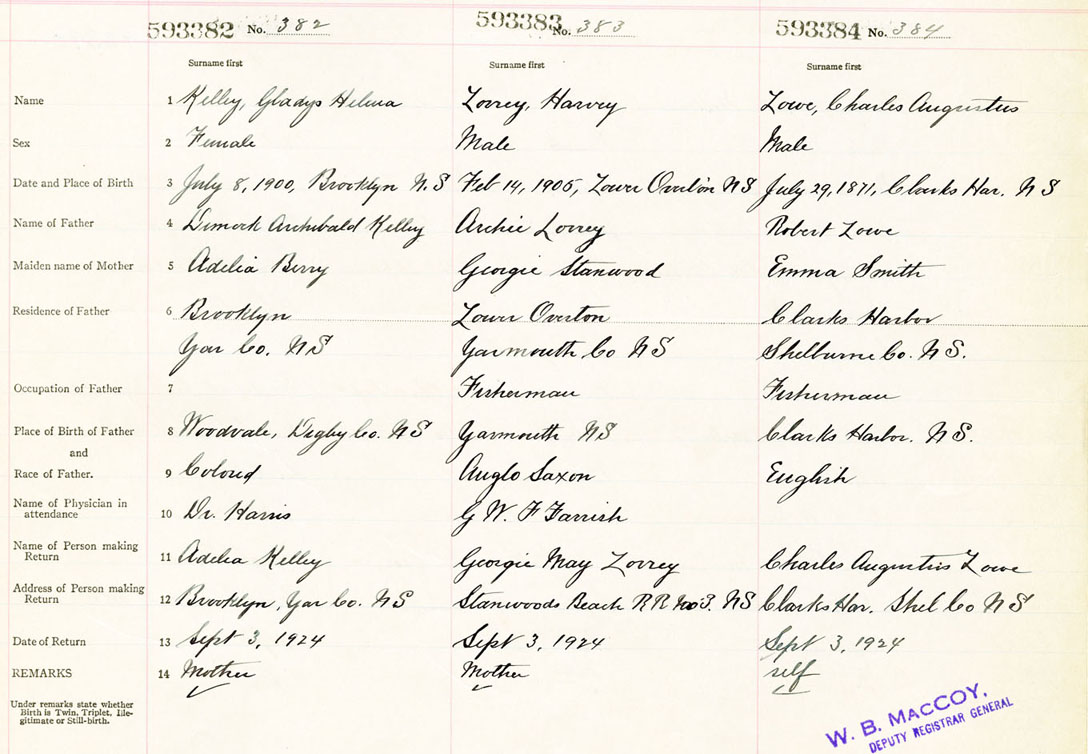 593382 No. 382 593383 No. 383 593384 No. 384
Surname first Surname first Surname first
Name 1 Kelley, Gladys Helena Lovrey, Harvey Lowe, Charles Augustus
Sex 2 Female Male Male
Date and Place of Birth 3 July 8, 1900, Brooklyn N.S Feb 14, 1905, Lower Overton NS July 29, 1871, Clarks Har. NS
Name of Father 4 Dimock Archibald Kelley Archie Lovrey Robert Lowe
Maiden name of Mother 5 Adelia Berry Georgie Stanwood Emma Smith
Residence of Father 6 Brooklyn Lower Overton Clarks Harbor
Yar Co. NS Yarmouth Co NS Shelburne Co. NS.
Occupation of Father 7 Fisherman Fisherman
Place of Birth of Father 8 Woodvale, Digby Co. NS Yarmouth NS Clarks Harbor. NS.
and
Race of Father. 9 Colored Anglo Saxon English
Name of Physician in
attendance 10 Dr. Harris G W. F Farrish
Name of Person making
Return 11 Adelia Kelley Georgie May Lovrey Charles Augustus Lowe
Address of Person making
Return 12 Brooklyn, Yar Co. NS Stanwoods Beach RR No 3. NS Clarks Har. Shel Co NS
Date of Return 13 Sept 3, 1924 Sept 3, 1924 Sept 3, 1924
REMARKS 14 Mother Mother self
Under remarks state whether
Birth is Twin, Triplet, Ille-
gitimate or Still-birth.
W. B. MACCOY,
DEPUTY REGISTRAR GENERAL